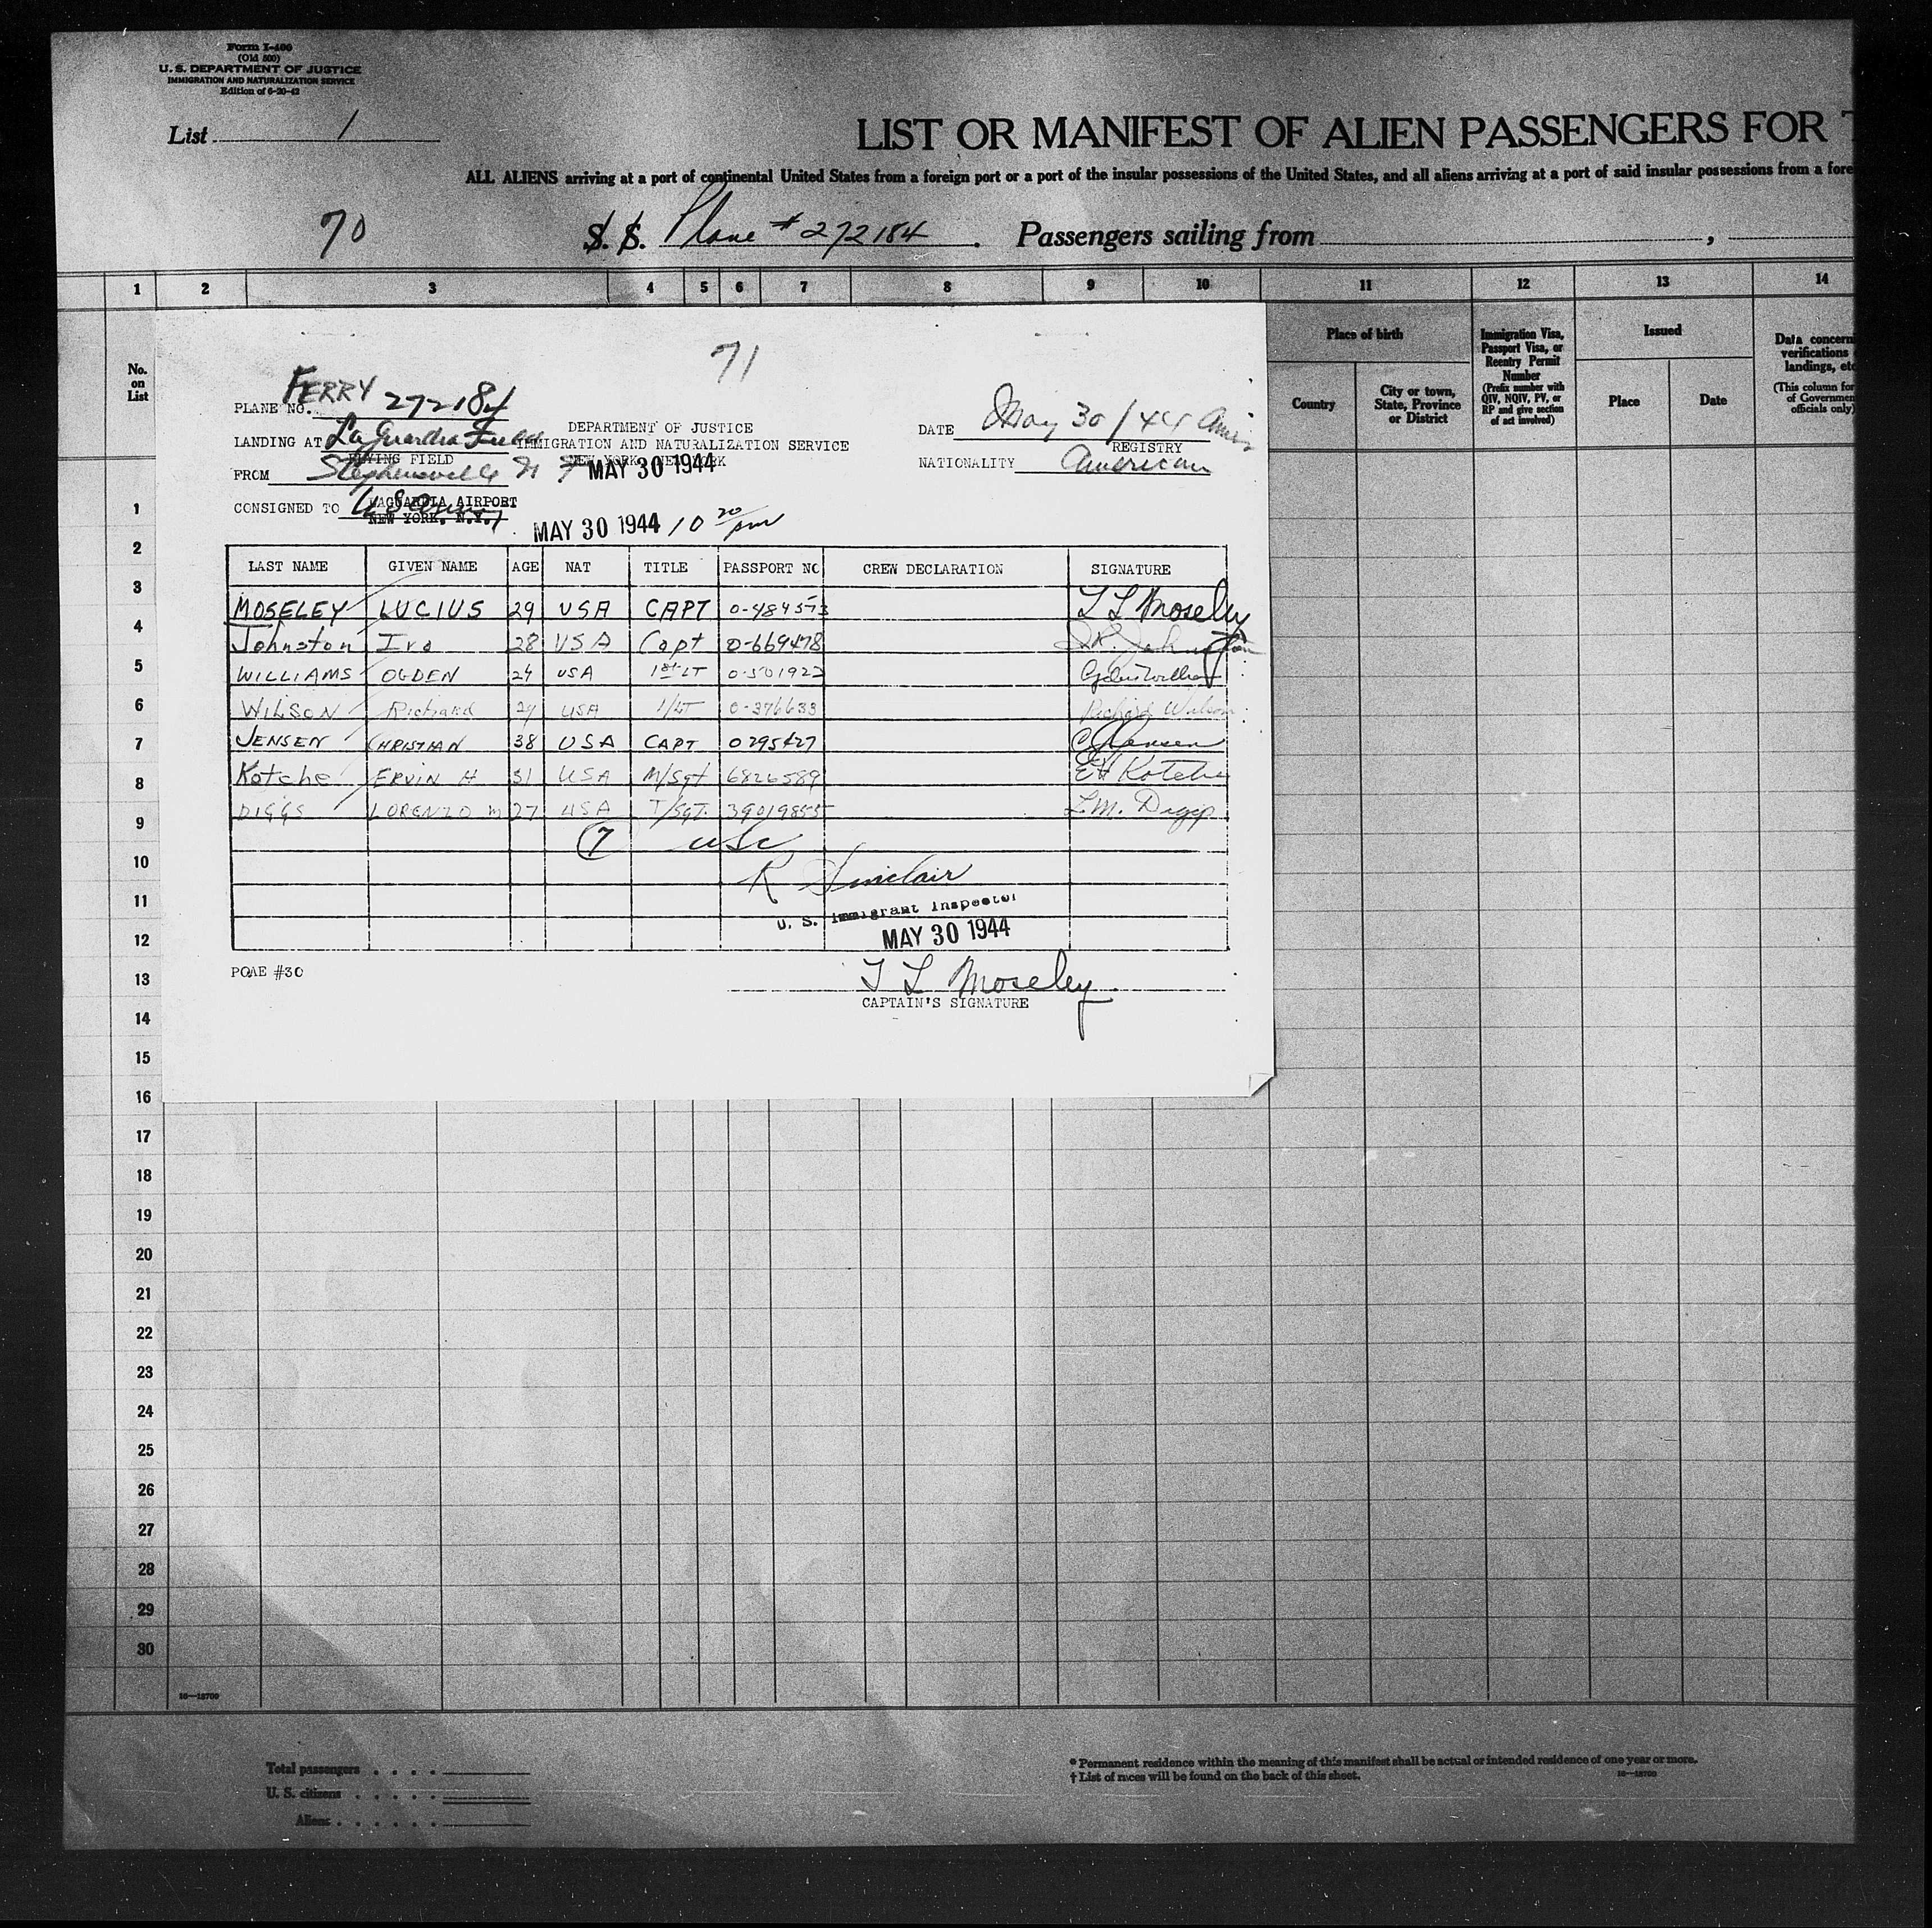 Form I-400
(Old 500)
U. S. DEPARTMENT OF JUSTICE
IMMIGRATION AND NATURALIZATION SERVICE
Edition of 6-20-42
List 1
LIST OR MANIFEST OF ALIEN PASSENGERS FOR
ALL ALIENS arriving at a port of continental United States from a foreign port or a port of the insular possessions of the United States, and all aliens arriving at a port of said insular possessions from a fore
70 S. S. Plane # 272184 . Passengers sailing from ,
1 2 3 4 5 6 7 8 9 10 11 12 13 14
No. on List
Place of birth
Country
City or town, State, Province or District
Immigration Visa, Passport Visa, or Reentry Permit Number
(Prefix number with QIV, NQIV, PV, or RP and give section of act involved)
Issued
Place Date
Data concern
verifications
landings, etc
(This column for
of Governmen
officials only)
71
PLANE NO. FERRY 272184
LANDING AT La Guardia Field
FLYING FIELD
FROM Stephensville N F
CONSIGNED TO U S Army
LAGUARDIA AIRPORT
NEW YORK, N.Y.
DEPARTMENT OF JUSTICE
IMMIGRATION AND NATURALIZATION SERVICE
NEW YORK, NEW YORK
MAY 30 1944
MAY 30 1944 10 20/pm
DATE May 30/44
REGISTRY
NATIONALITY American
LAST NAME GIVEN NAME AGE NAT TITLE PASSPORT NO CREW DECLARATION SIGNATURE
MOSELEY LUCIUS 29 USA CAPT 0-484573 T L Moseley
Johnston Ira 28 USA Capt 0-669478 I.R. Johnston
WILLIAMS OGDEN 24 USA 1st LT 0-501922 Ogden Williams
WILSON Richard 24 USA 1/LT 0-376633 Richard Wilson
JENSEN CHRISTIAN 38 USA CAPT 0295427 C Jensen
Kotche ERVIN H 31 USA M/Sgt 6826589 EH Kotche
DIGGS LORENZO M 27 USA T/SGT. 39019855 L.M. Diggs
7 USC
R Sinclair
U. S. Immigrant Inspector
MAY 30 1944
PQAE #30
T L Moseley
CAPTAIN'S SIGNATURE
1
2
3
4
5
6
7
8
9
10
11
12
13
14
15
16
17
18
19
20
21
22
23
24
25
26
27
28
29
30
16—18700
Total passengers . . . .
U. S. citizens . . . . .
Aliens . . . . . .
* Permanent residence within the meaning of this manifest shall be actual or intended residence of one year or more.
† List of races will be found on the back of this sheet.
16—18700